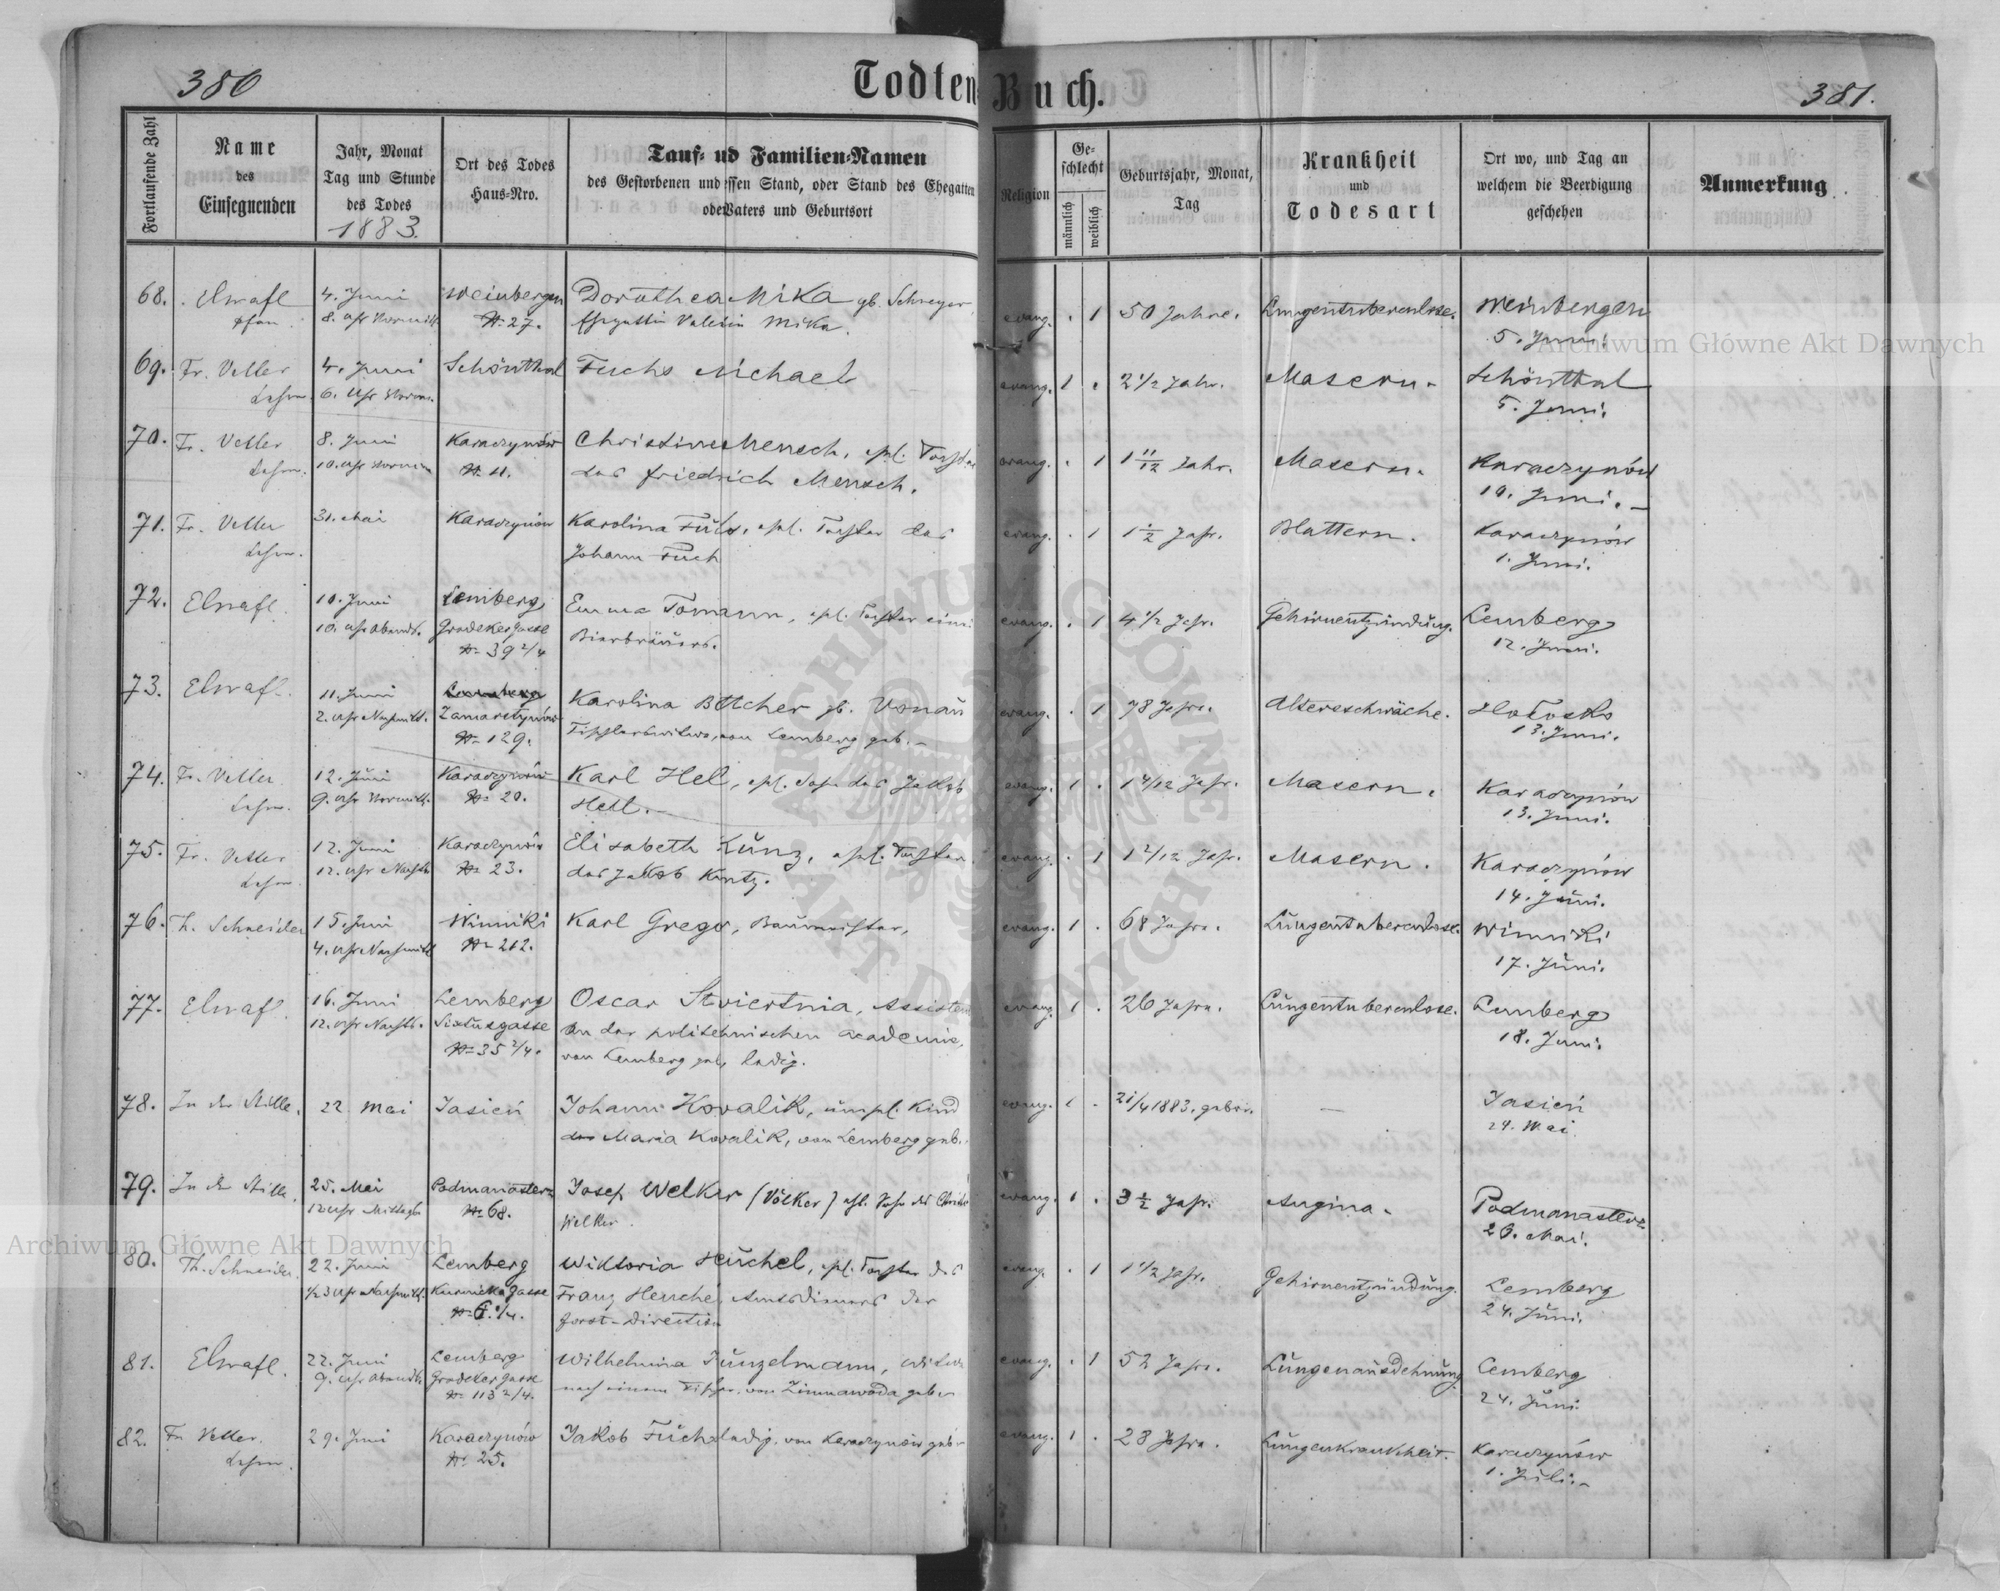 380
Todten-Buch.
381.
Fortlaufende Zahl
Name
des
Einsegnenden
Jahr, Monat
Tag und Stunde
des Todes
1883.
Ort des Todes
Haus-Nro.
Tauf- ud Familien-Namen
des Gestorbenen und essen Stand, oder Stand des Ehegatten
oder Vaters und Geburtsort
Religion
Ge-
schlecht
männlich
weiblich
Geburtsjahr, Monat,
Tag
Krankheit
und
Todesart
Ort wo, und Tag an
welchem die Beerdigung
geschehen
Anmerkung
68. Elwafl 4. Juni Weinbergen Dorothea Mika gb. Schreyer evang. . 1 50 Jahre. Lungentuberculose. Weinbergen
8. Uhr Vormitt. № 27. Ehegattin Valerin Mika. 5. Juni.
69. Fr. Vetter 4. Juni Schönthal Fuchs Michael evang. 1 . 2 1/2 Jahr. Masern. Schönthal
Lehrer. 6. Uhr Vorm. 5. Juni.
70. Fr. Vetter 8. Juni Karaczynów Christine Mensch, ehl. Tochter evang. . 1 1 11/12 Jahr. Masern. Karaczynów
Lehrer. 10. Uhr Vorm. № 11. des Friedrich Mensch. 10. Juni.
71. Fr. Vetter 31. Mai Karaczynów Karolina Fuchs, ehl. Tochter des evang. . 1 1 1/2 Jahr. Blattern. Karaczynów
Lehrer. Johann Fuch 1. Juni.
72. Elwafl. 10. Juni Lemberg Emma Tomann, ehl. Tochter eines evang. . 1 4 1/2 Jahr. Gehirnentzündung. Lemberg
10. Uhr Abends. Grodekergasse Bierbräuers. 12. Juni.
№ 39 2/4
73. Elwafl. 11. Juni Lemberg Karolina Bttcher gb. Vonau evang. . 1 78 Jahre. Altersschwäche. Hołosko
2. Uhr Nachmitt. Zamarstynów Tischlerswitwe, von Lemberg geb. 13. Juni.
№ 129.
74. Fr. Vetter 12. Juni Karaczynów Karl Hell, ehl. Sohn des Jakob evang. 1 . 1 4/12 Jahr. Masern. Karaczynów
Lehrer. 9. Uhr Vormitt. № 20. Hell. 13. Juni.
75. Fr. Vetter 12. Juni Karaczynów Elisabeth Kunz, ehl. Tochter evang. . 1 1 2/12 Jahr. Masern. Karaczynów
Lehrer. 12. Uhr Nachts № 23. des Jakob Kuntz. 14. Juni.
76. Th. Schneider 15. Juni Winniki Karl Gregor, Baumeister, evang. 1 . 68 Jahre. Lungentuberculose. Winniki
4. Uhr Nachmitt № 212. 17. Juni.
77. Elwafl. 16. Juni Lemberg Oscar Stwiertnia, Assistent evang. 1 . 26 Jahre. Lungentuberculose. Lemberg
12. Uhr Nachts. Sixtusgasse an der politechnischen academie, 18. Juni.
№ 35 2/4. von Lemberg geb, ledig.
78. In der Stille. 22 Mai Jasień Johann Kowalik, unehl. Kind evang. 1 . 21/4 1883. gebor. — Jasień
der Maria Kowalik, von Lemberg geb. 24. Mai
79. In der Stille. 25. Mai Podmanasterz Josef Welker (Völker) ehl. Sohn des evang. 1 . 3 1/2 Jahr. Angina. Podmanasterz
12 Uhr Mittags № 68. Welker. 26. Mai.
80. Th. Schneider. 22. Juni Lemberg Wiktoria Heuchel, ehl. Tochter des evang. . 1 1 1/2 Jahr. Gehirnentzündung. Lemberg
1/2 3 Uhr Nachmitt. gasse Franz Heuchel, Amtsdieners der 24. Juni.
Forst-Direction
81. Elwafl. 22. Juni Lemberg Wilhelmina Junzelmann, Witwe evang. . 1 52 Jahre. Lungenausdehnung. Lemberg
9. Uhr Abends. Grodeker gasse nach einem von Zimnawoda geb. 24. Juni
№ 113 2/4.
82. Fr. Vetter. 29. Juni Karaczynów Jakob Fuchs ledig. von Karaczynów geb. evang. 1 . 28 Jahre. Lungenkrankheit. Karaczynów
Lehrer. № 25. 1. Juli.
Archiwum Główne Akt Dawnych
Archiwum Główne Akt Dawnych
ARCHIWUM GŁÓWNE
AKT DAWNYCH